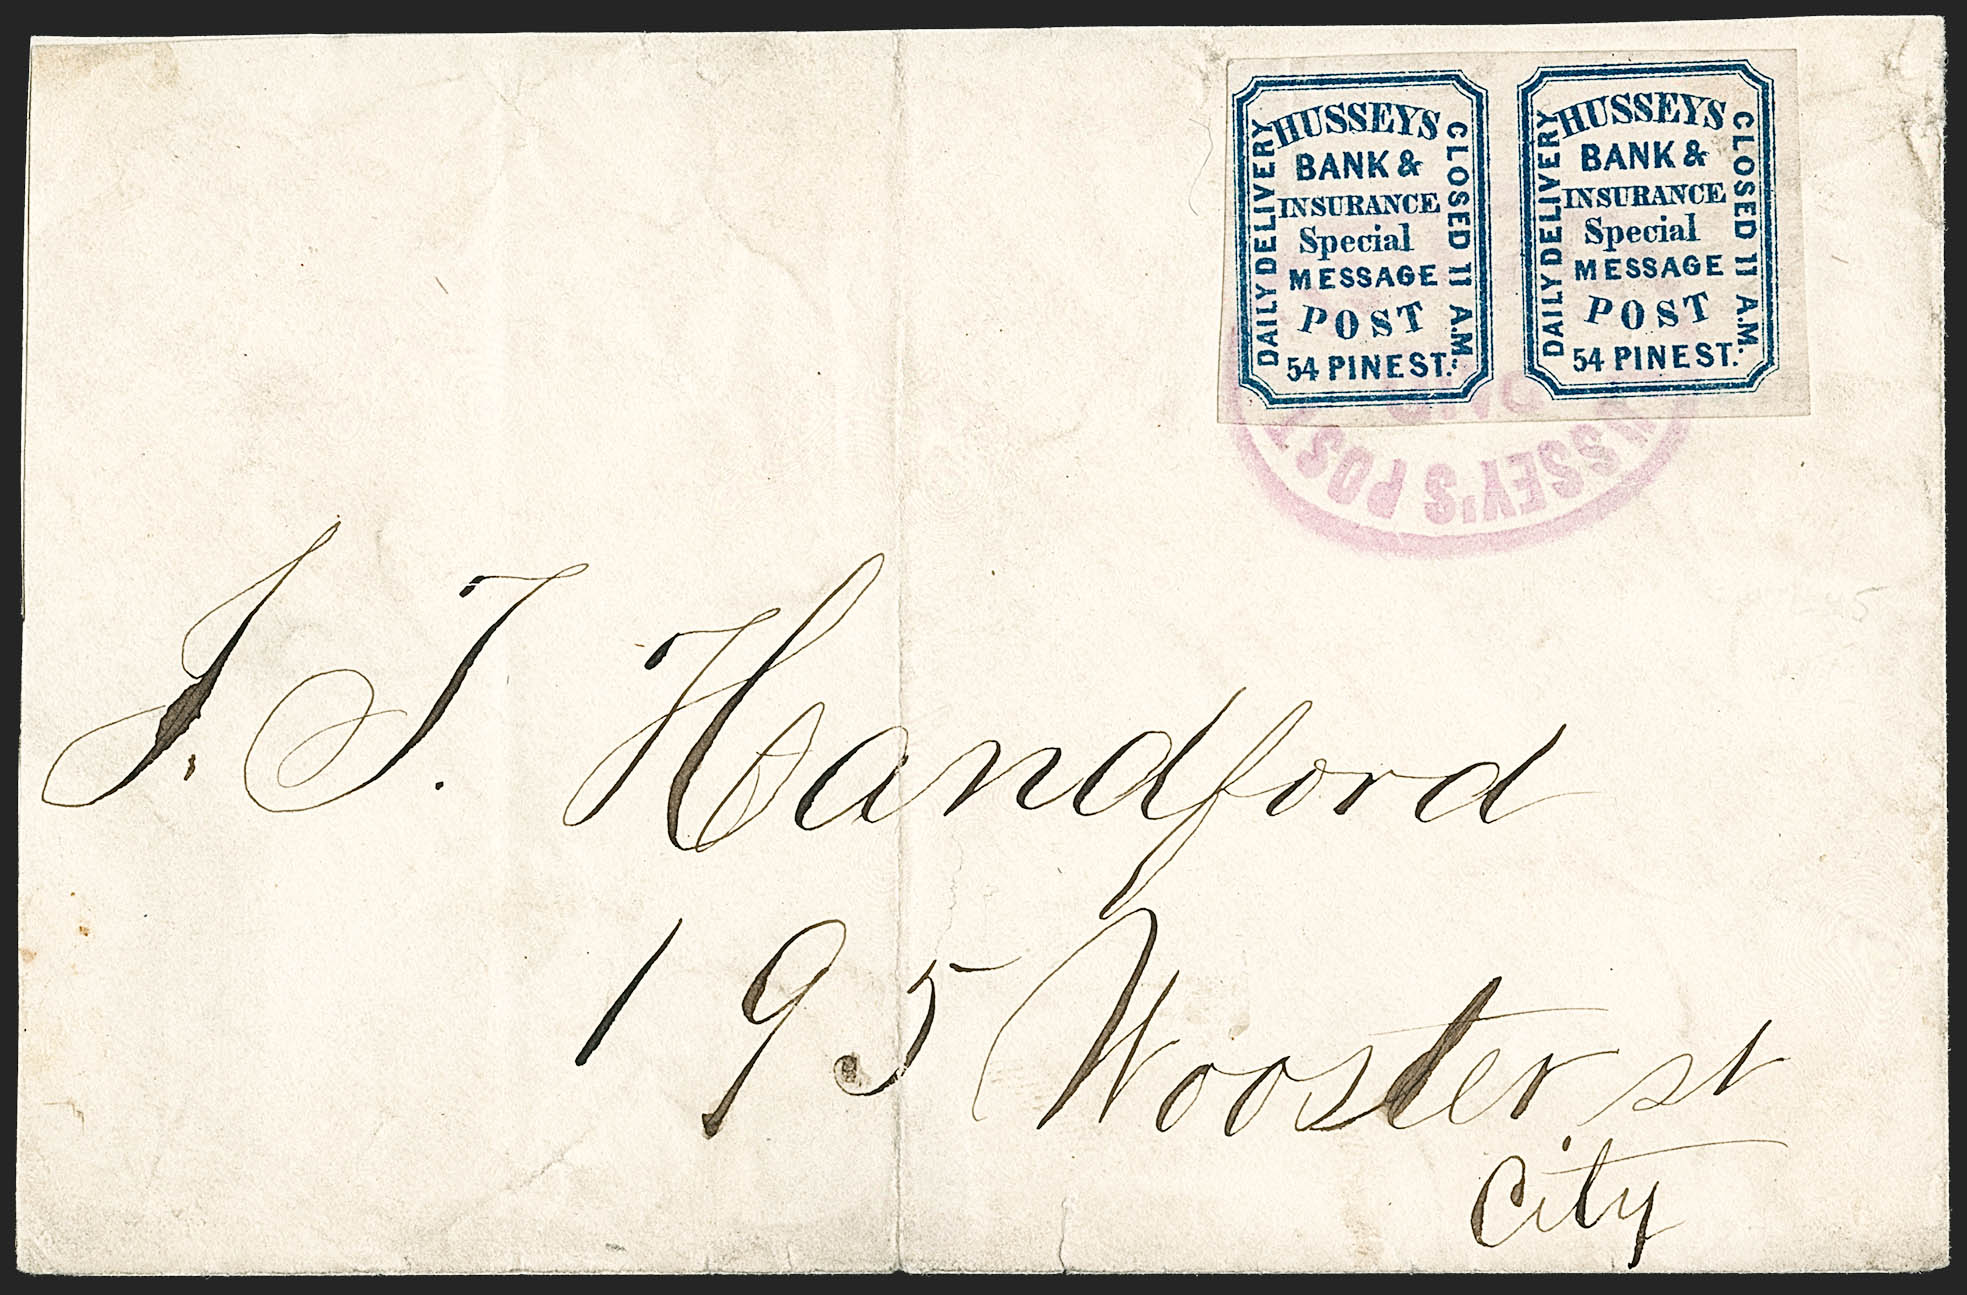 HUSSEYS
BANK &
INSURANCE
Special
MESSAGE
POST
54 PINE ST.
DAILY DELIVERY
CLOSED 11 A.M.
HUSSEYS
BANK &
INSURANCE
Special
MESSAGE
POST
54 PINE ST.
DAILY DELIVERY
CLOSED 11 A.M.
HUSSEY'S POST
J. T. Handford
195 Wooster st
City